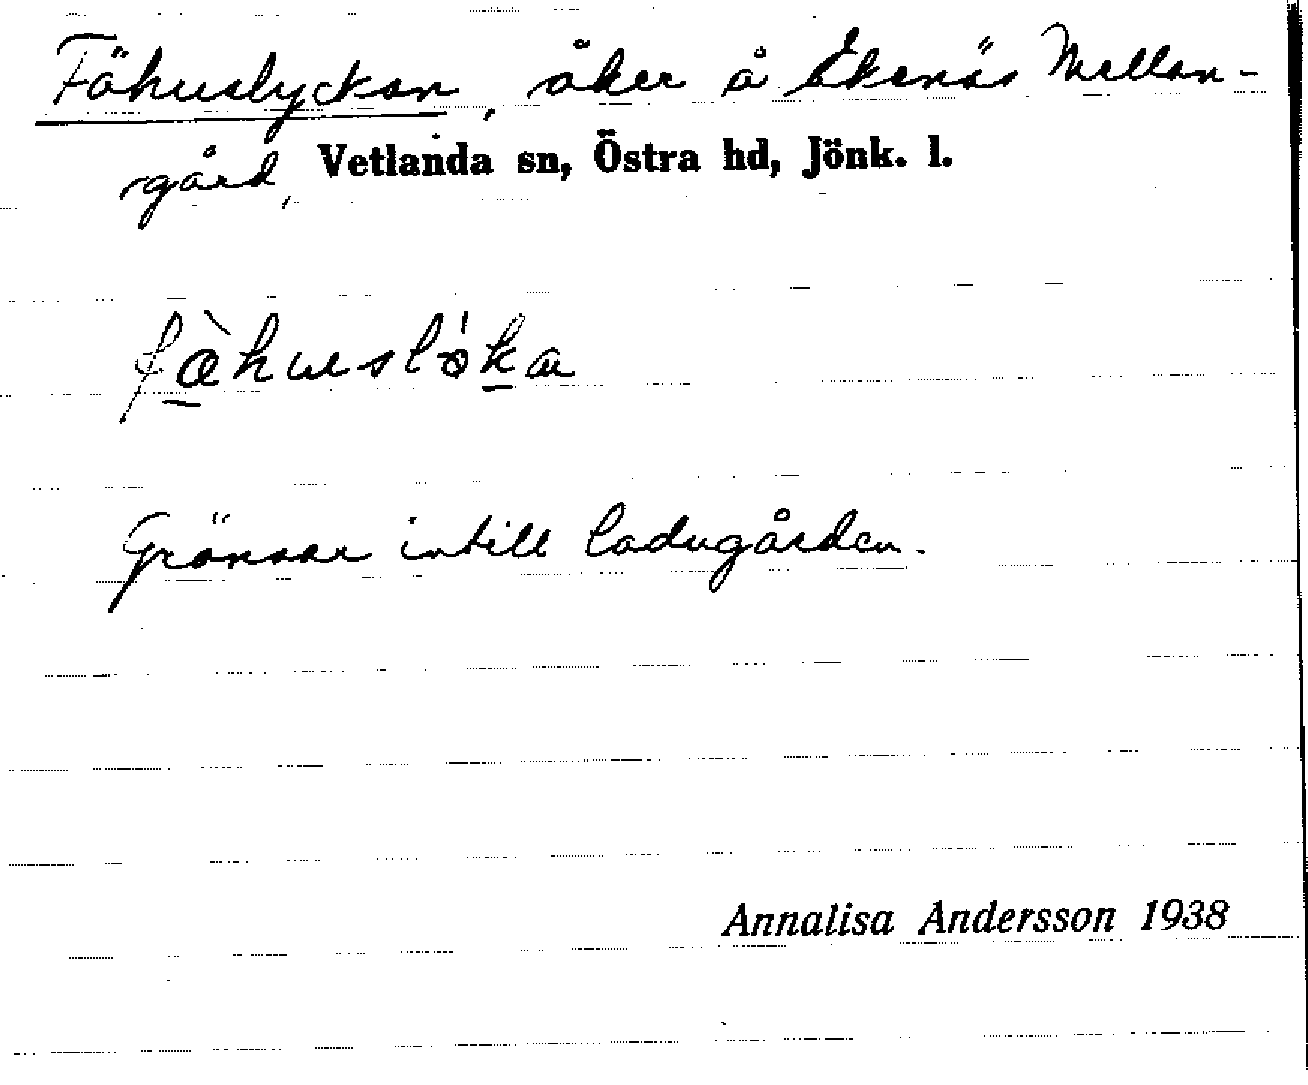 Fähuslyckan, åker å Ekenäs Mellan-
gård, Vetlanda sn, Östra hd, Jönk. l.
Gränsar intill ladugården.
Annalisa Andersson 1938